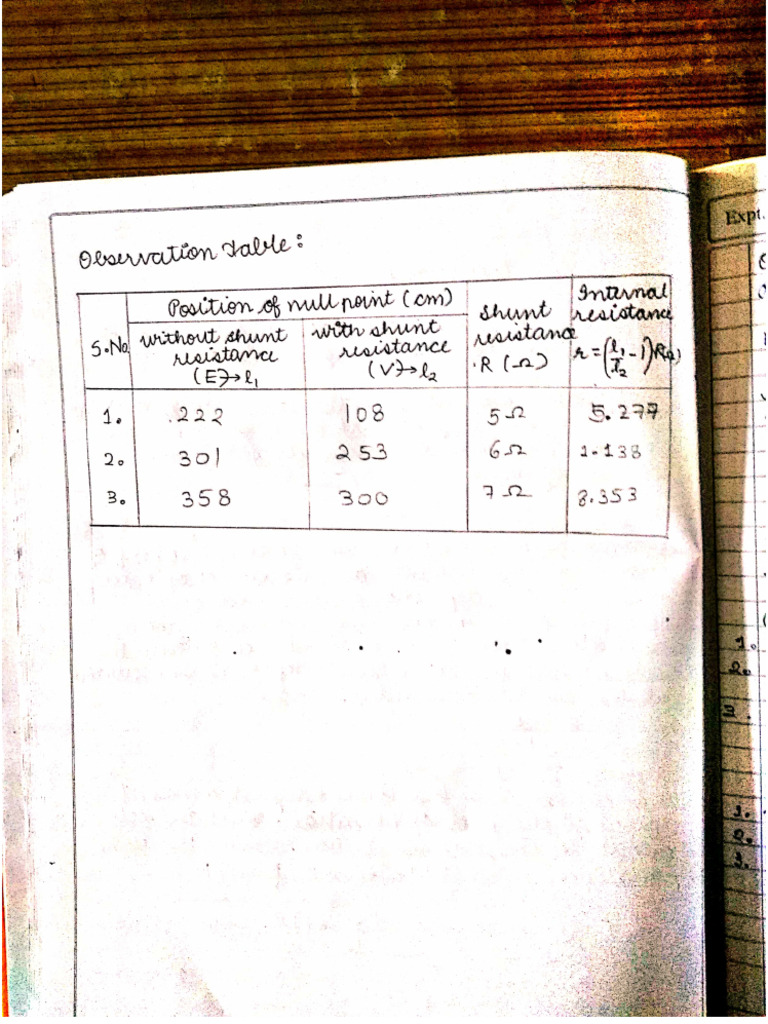 Expt.
Observation Table:
S.No.
Position of null point (cm)
without shunt
resistance
(E)→l₁
with shunt
resistance
(V)→l₂
shunt
resistance
R (Ω)
Internal
resistance
r = (l₁/l₂ - 1)R(Ω)
1. 222 108 5Ω 5.277
2. 301 253 6Ω 1.138
3. 358 300 7Ω 8.353
1.
2.
3.
1.
2.
3.